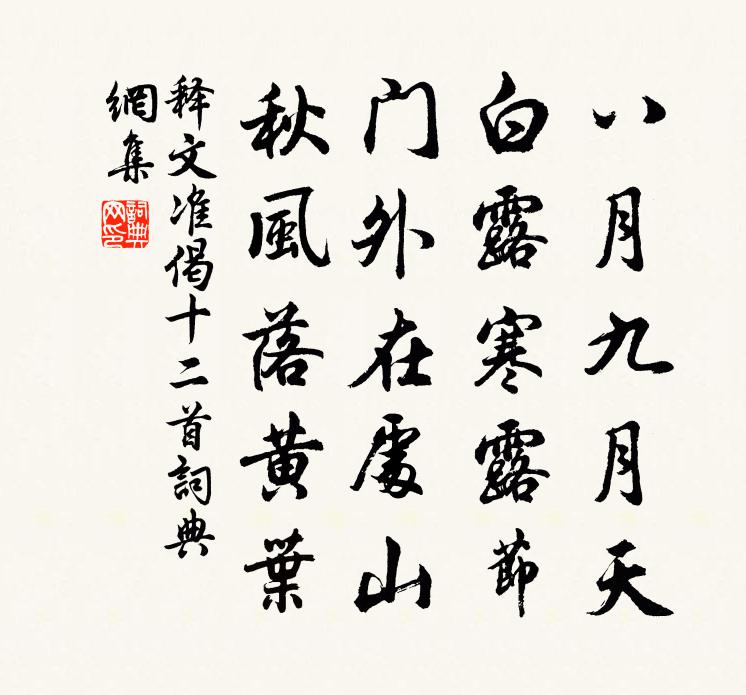 八月九月天
白露寒露節
门外在處山
秋風落黄葉
释文准偈十二首詞典
網集
詞典網印